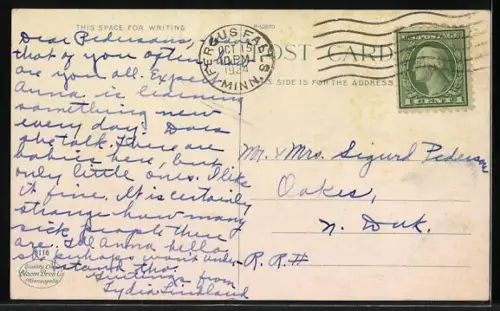 THIS SPACE FOR WRITING
POST CARD
THIS SIDE IS FOR THE ADDRESS
FERGUS FALLS,
OCT 15
PM
MINN.
1 CENT 1
Dear Pedersons,
that of you often
are you all. Expect
Anna is learning
something new
every day. Does
she talk. There are
babies here, but
only little ones. I like
it fine. It is certainly
strange how many
sick people there
are. Tell Anna hello
perhaps won't under-
stand tho.
from
Lydia
Mr. & Mrs. Sigurd Pederson
Oakes,
N. Dak.
R. R. #
Bloom Bros. Co.
Minneapolis